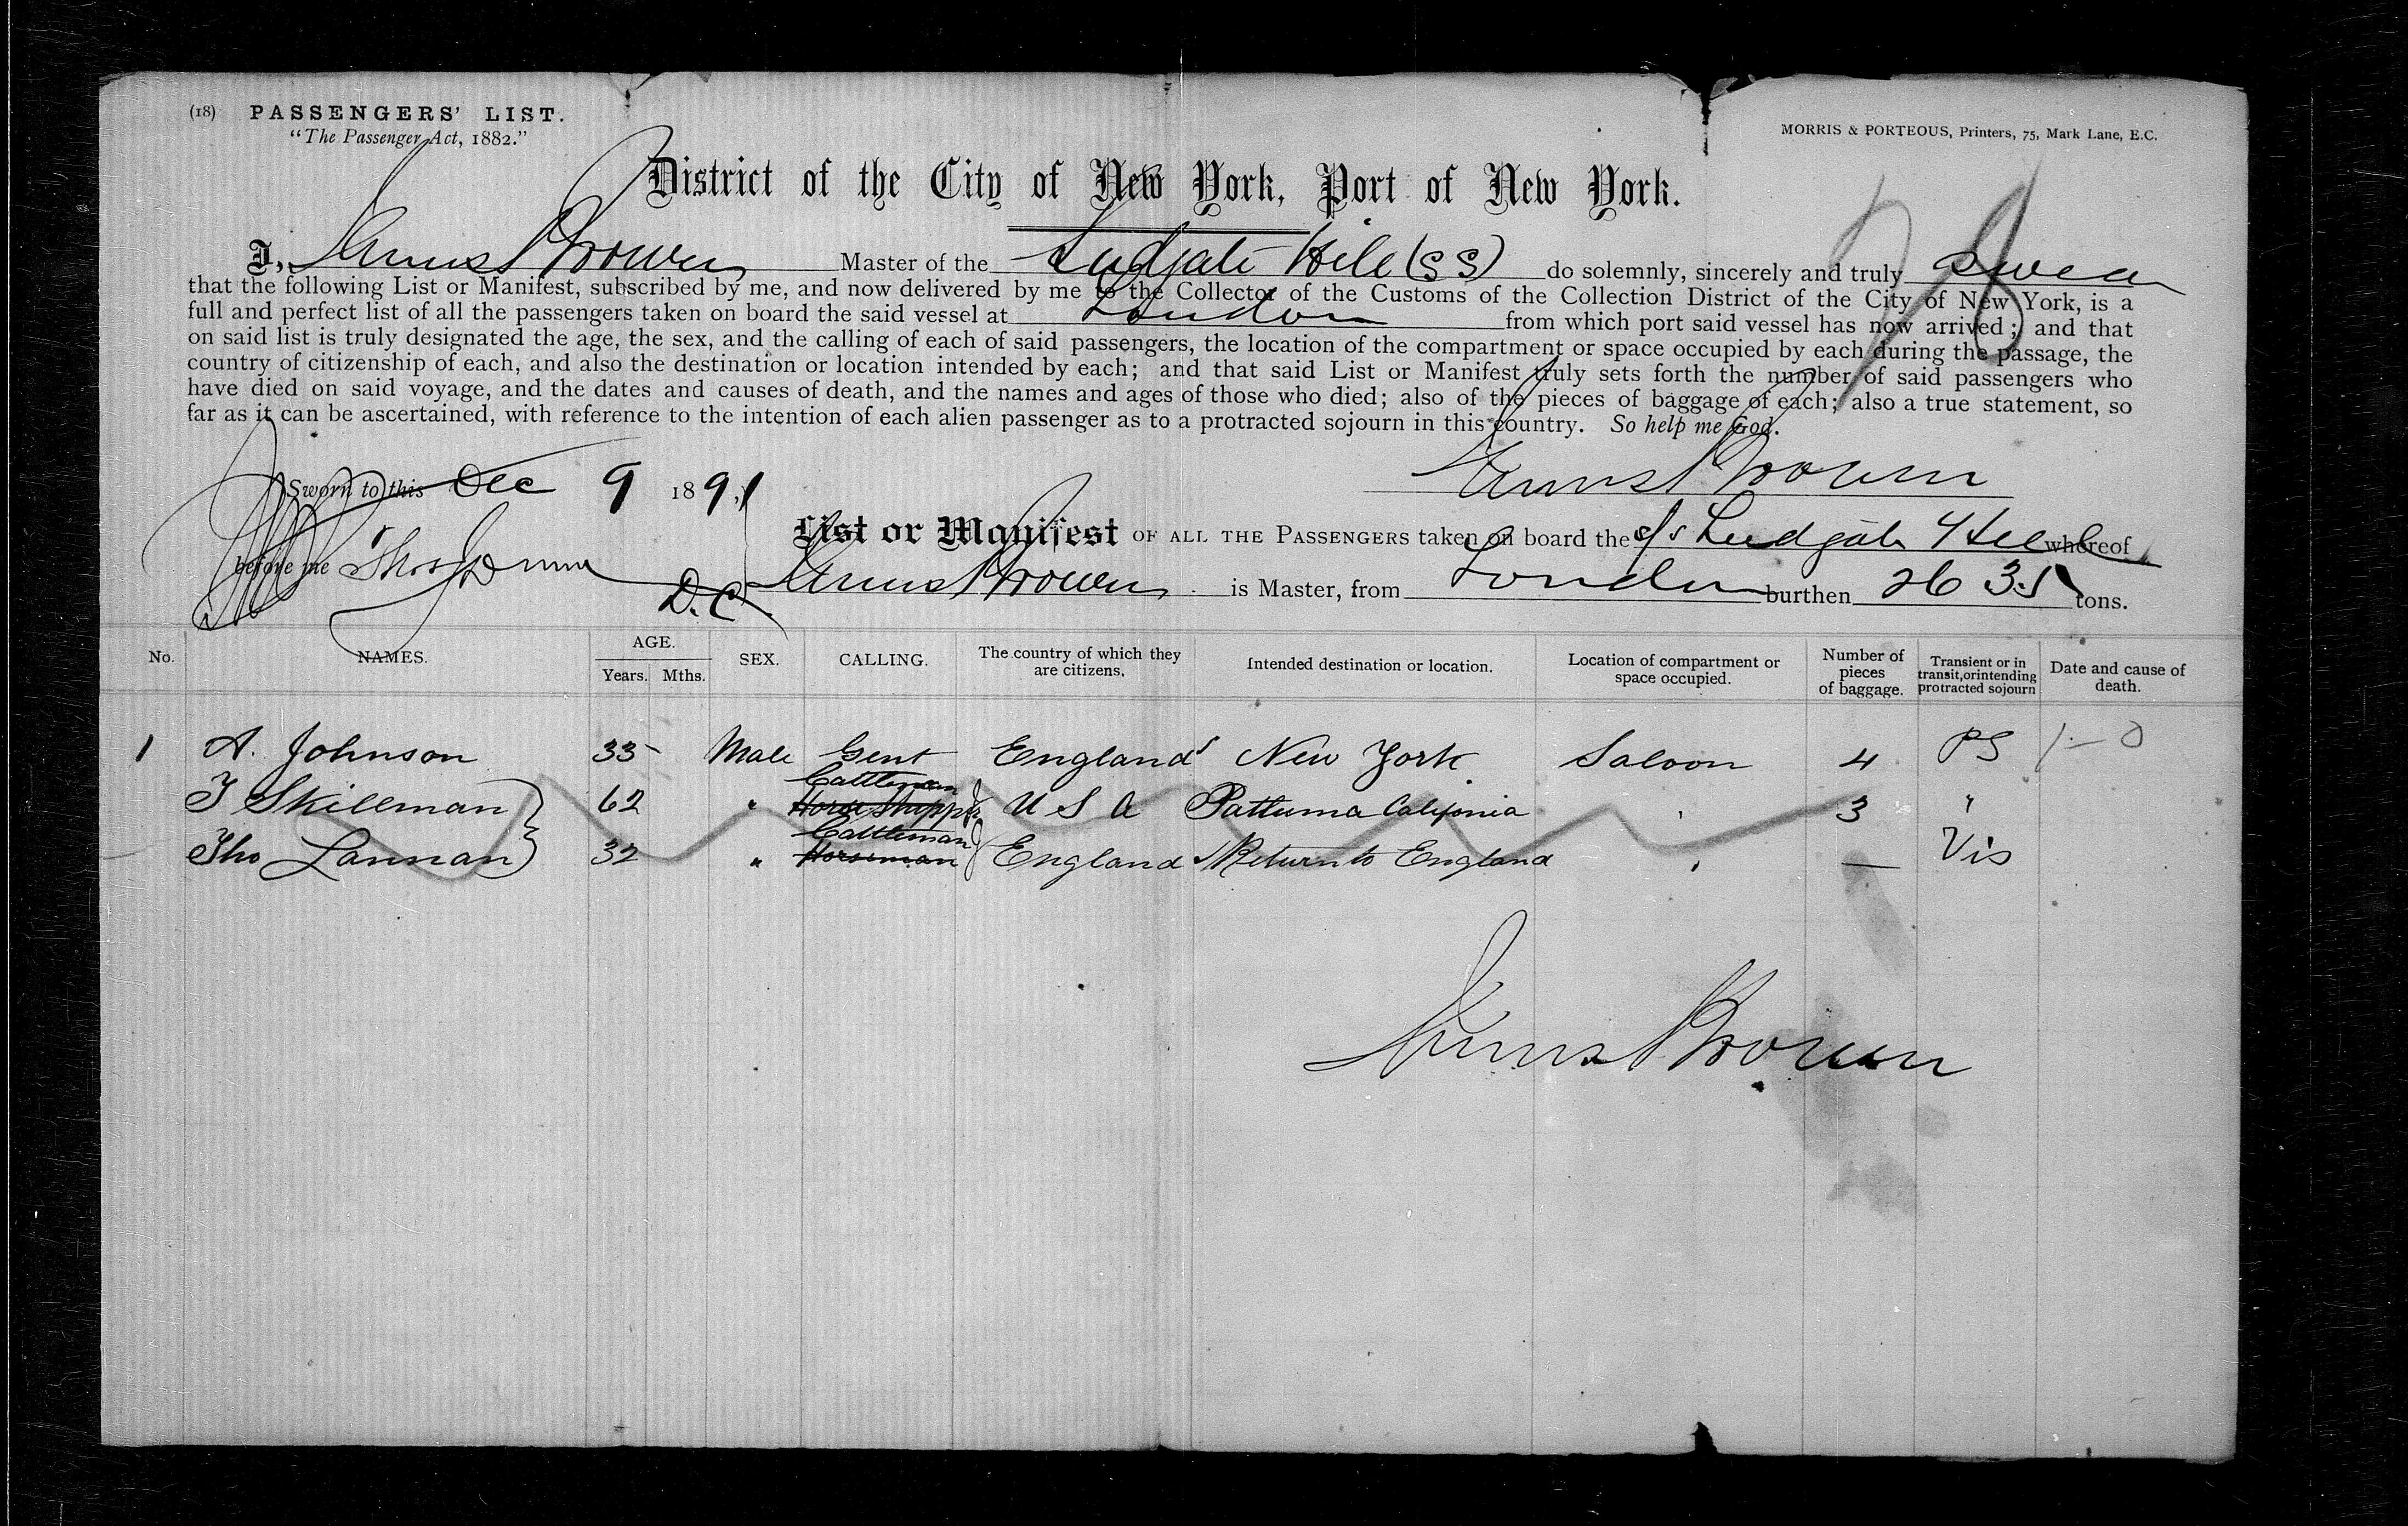 (18) PASSENGERS' LIST.
"The Passenger Act, 1882."
MORRIS & PORTEOUS, Printers, 75, Mark Lane, E.C.
District of the City of New York, Port of New York.
I, Brown Master of the Ludgate Hill (SS) do solemnly, sincerely and truly Swear
that the following List or Manifest, subscribed by me, and now delivered by me to the Collector of the Customs of the Collection District of the City of New York, is a
full and perfect list of all the passengers taken on board the said vessel at London from which port said vessel has now arrived; and that
on said list is truly designated the age, the sex, and the calling of each of said passengers, the location of the compartment or space occupied by each during the passage, the
country of citizenship of each, and also the destination or location intended by each; and that said List or Manifest truly sets forth the number of said passengers who
have died on said voyage, and the dates and causes of death, and the names and ages of those who died; also of the pieces of baggage of each; also a true statement, so
far as it can be ascertained, with reference to the intention of each alien passenger as to a protracted sojourn in this country. So help me God.
Brown
Sworn to this Dec 9 1891
List or Manifest OF ALL THE PASSENGERS taken on board the s/s Ludgate Hill whereof
before me Thos Dunn D.C.
Brown is Master, from London burthen 2635 tons.
No. NAMES. AGE. Years. Mths. SEX. CALLING. The country of which they are citizens. Intended destination or location. Location of compartment or space occupied. Number of pieces of baggage. Transient or in transit, or intending protracted sojourn Date and cause of death.
1 A. Johnson 33 Male Gent England New York Saloon 4 PS 1-0
Cattleman
T Skillman 62 " Horse Shipper U S A Pattuma Califonia " 3 "
Cattleman
Tho Lannan 32 " Horseman England Return to England " — Vis
Brown